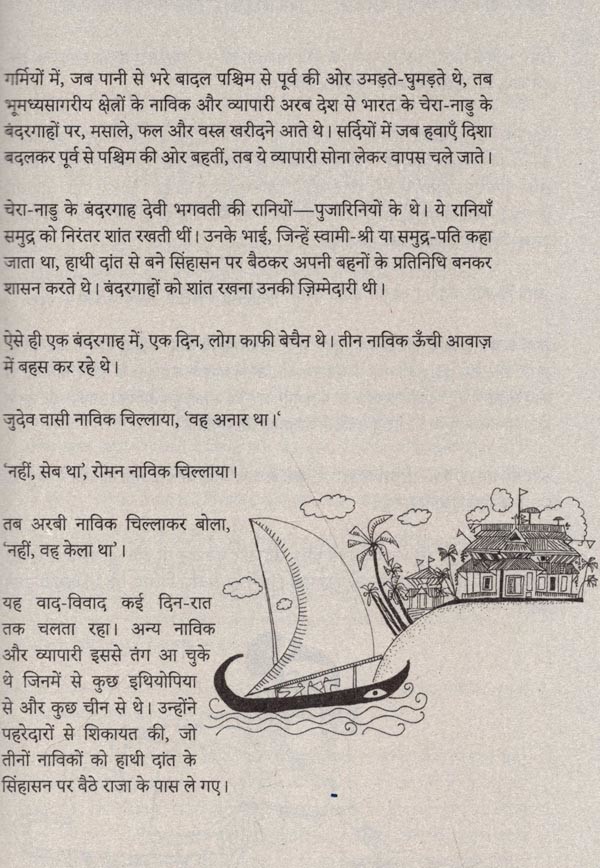 गर्मियों में, जब पानी से भरे बादल पश्चिम से पूर्व की ओर उमड़ते-घुमड़ते थे, तब
भूमध्यसागरीय क्षेत्रों के नाविक और व्यापारी अरब देश से भारत के चेरा-नाडु के
बंदरगाहों पर, मसाले, फल और वस्त्र खरीदने आते थे। सर्दियों में जब हवाएँ दिशा
बदलकर पूर्व से पश्चिम की ओर बहतीं, तब ये व्यापारी सोना लेकर वापस चले जाते।
चेरा-नाडु के बंदरगाह देवी भगवती की रानियों—पुजारिनियों के थे। ये रानियाँ
समुद्र को निरंतर शांत रखती थीं। उनके भाई, जिन्हें स्वामी-श्री या समुद्र-पति कहा
जाता था, हाथी दांत से बने सिंहासन पर बैठकर अपनी बहनों के प्रतिनिधि बनकर
शासन करते थे। बंदरगाहों को शांत रखना उनकी ज़िम्मेदारी थी।
ऐसे ही एक बंदरगाह में, एक दिन, लोग काफी बेचैन थे। तीन नाविक ऊँची आवाज़
में बहस कर रहे थे।
जुदेव वासी नाविक चिल्लाया, ‘वह अनार था।‘
‘नहीं, सेब था’, रोमन नाविक चिल्लाया।
तब अरबी नाविक चिल्लाकर बोला,
‘नहीं, वह केला था’।
यह वाद-विवाद कई दिन-रात
तक चलता रहा। अन्य नाविक
और व्यापारी इससे तंग आ चुके
थे जिनमें से कुछ इथियोपिया
से और कुछ चीन से थे। उन्होंने
पहरेदारों से शिकायत की, जो
तीनों नाविकों को हाथी दांत के
सिंहासन पर बैठे राजा के पास ले गए।